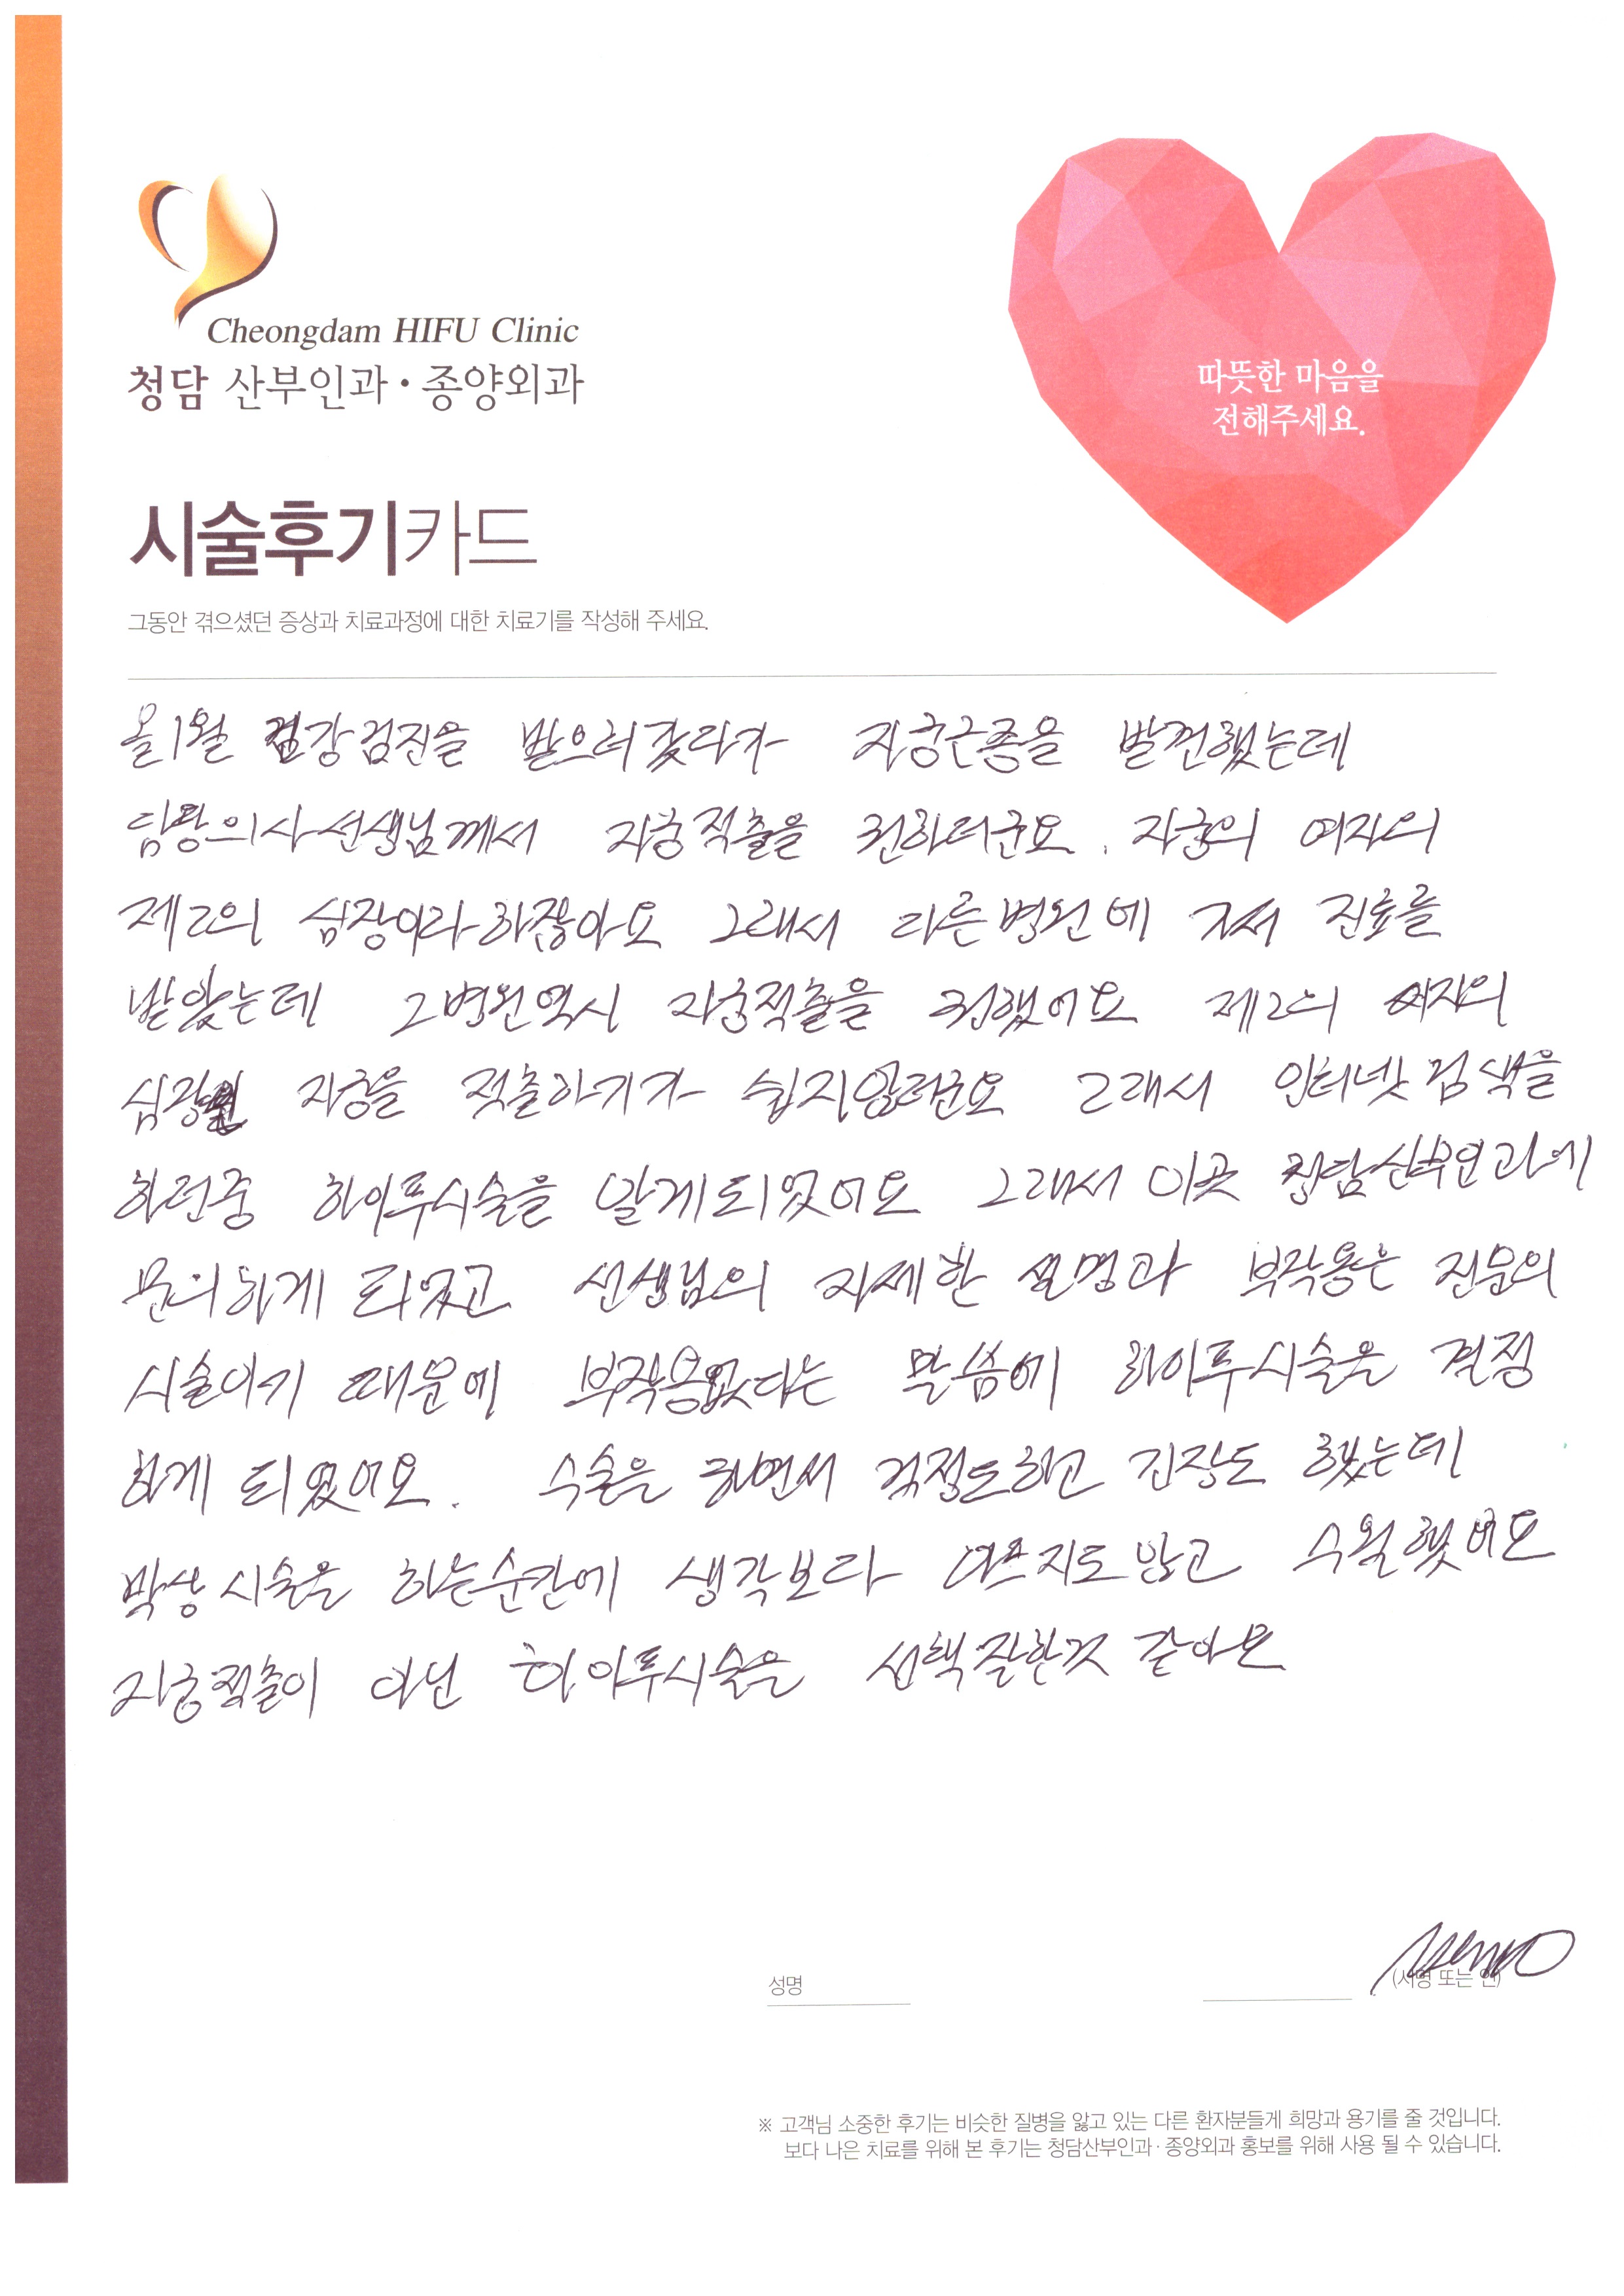 Cheongdam HIFU Clinic
청담 산부인과·종양외과
따뜻한 마음을
전해주세요.
시술후기카드
그동안 겪으셨던 증상과 치료과정에 대한 치료기를 작성해 주세요.
올1월 건강검진을 받으러갔다가 자궁근종을 발견했는데
담당의사선생님께서 자궁적출을 권하더군요. 자궁의 여자의
제2의 심장이라하잖아요 그래서 다른병원에 가서 진료를
받았는데 그병원역시 자궁적출을 권했어요 제2의 여자의
심장인 자궁을 적출하기가 쉽지않더군요 그래서 인터넷검색을
하던중 하이푸시술을 알게되었어요 그래서 이곳 청담산부인과에
문의하게 되었고 선생님의 자세한 설명과 부작용은 전문의
시술이기 때문에 부작용없다는 말씀에 하이푸시술을 결정
하게 되었어요. 수술은 하면서 걱정도하고 긴장도 했는데
막상시술을 하는순간에 생각보다 아프지도않고 수월했어요
자궁적출이 아닌 하이푸시술은 선택잘한것 같아요
성명
(서명 또는 인)
※ 고객님 소중한 후기는 비슷한 질병을 앓고 있는 다른 환자분들게 희망과 용기를 줄 것입니다.
보다 나은 치료를 위해 본 후기는 청담산부인과·종양외과 홍보를 위해 사용 될 수 있습니다.